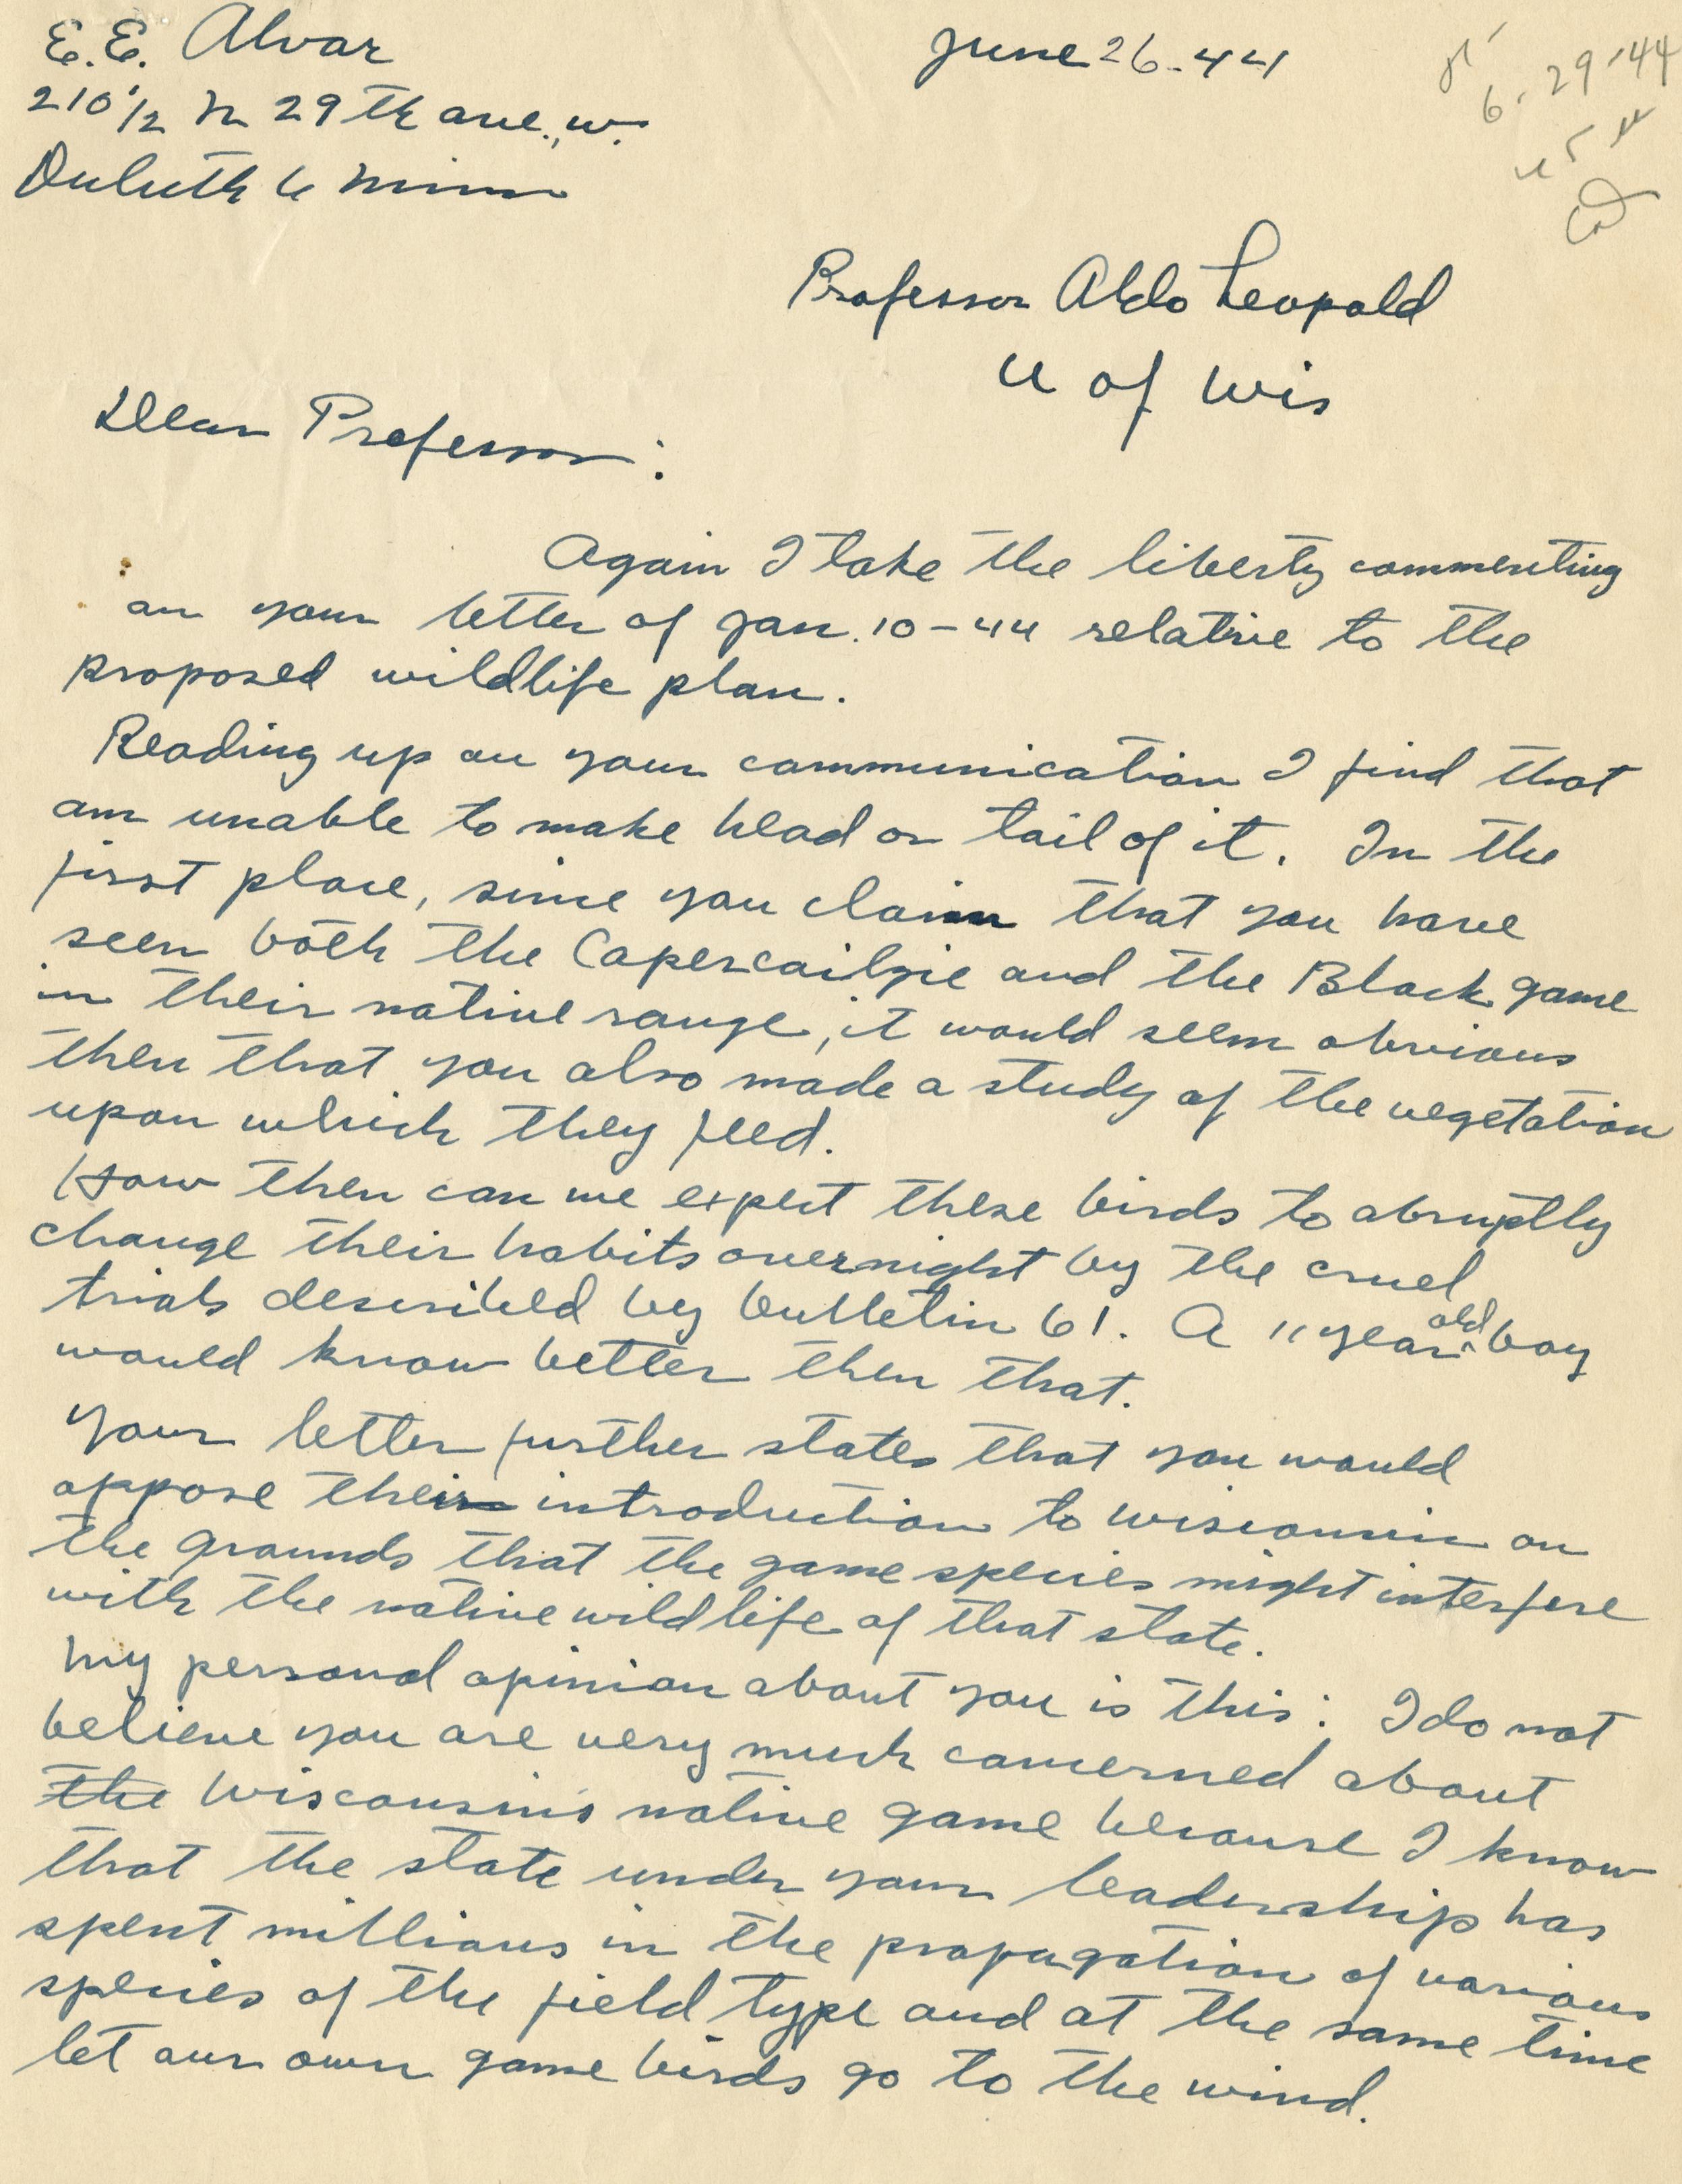 E.E. Alvar
June 26-44
6-29-44
210 1/2 N 29th ave., w.
Duluth 6 Minn
Professor Aldo Leopold
U of Wis
Dear Professor:
Again I take the liberty commenting
on your letter of Jan. 10-44 relative to the
proposed wildlife plan.
Reading up on your communication I find that
am unable to make head or tail of it. In the
first place, since you claim that you have
seen both the Capercailzie and the Black game
in their native range, it would seem obvious
then that you also made a study of the vegetation
upon which they feed.
How then can we expect these birds to abruptly
change their habits overnight by the cruel
trials described by bulletin 61. A 11 year old boy
would know better then that.
Your letter further states that you would
oppose their introduction to wisconsin on
the grounds that the game species might interfere
with the native wildlife of that state.
My personal opinion about you is this: I do not
believe you are very much concerned about
the Wisconsin's native game because I know
that the state under your leadership has
spent millions in the propagation of various
species of the field type and at the same time
let our own game birds go to the wind.